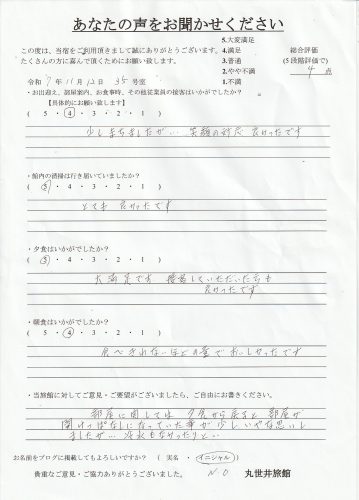 あなたの声をお聞かせください
この度は、当宿をご利用頂きまして誠にありがとうございます。
たくさんの方に喜んで頂くためにお願い致します。
5.大変満足
4.満足
3.普通
2.やや不満
1.不満
総合評価
(5段階評価で)
4 点
令和 7年 11月 12日 35号室
・お出迎え、部屋案内、お食事時、その他従業員の接客はいかがでしたか?
【具体的にお願い致します】
(5 ・ 4 ・ 3 ・ 2 ・ 1)
少しまちましたが、笑顔の対応 良かったです
・館内の清掃は行き届いていましたか?
(5 ・ 4 ・ 3 ・ 2 ・ 1)
とても 良かったです
・夕食はいかがでしたか?
(5 ・ 4 ・ 3 ・ 2 ・ 1)
大満足です 接客していただいた方も
良かったです
・朝食はいかがでしたか?
(5 ・ 4 ・ 3 ・ 2 ・ 1)
食べきれないほどの量でおいしかったです
・当旅館に対してご意見・ご要望がございましたら、ご自由にお書きください。
部屋に関しては 夕食から戻ると 部屋が
開けっぱなしになっていた事が 少しいやな思いし
ましたが…
お名前をブログに掲載してもよろしいですか? ( 実名 ・ イニシャル )
貴重なご意見・ご協力ありがとうございました。
N O
丸世井旅館